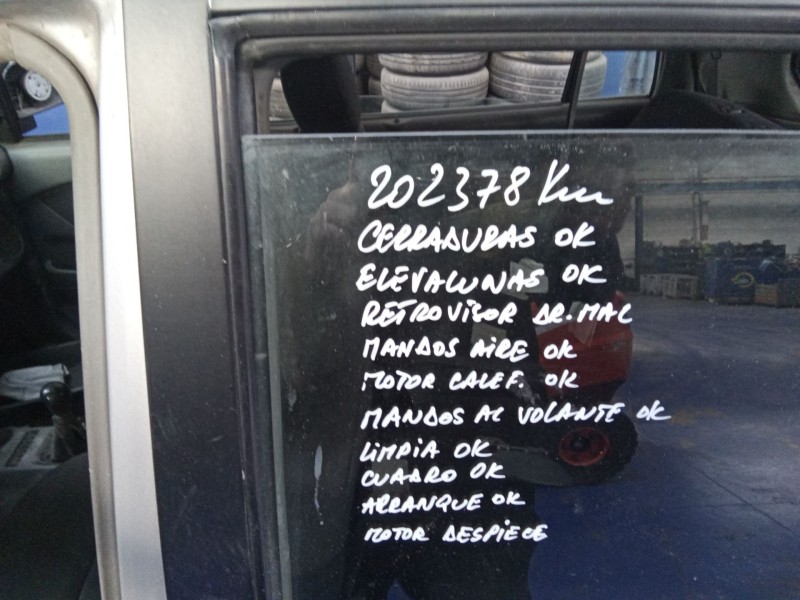 202378 Km
CERRADURAS OK
ELEVALUNAS OK
RETROVISOR DR. MAL
MANDOS AIRE OK
MOTOR CALEF. OK
MANDOS AL VOLANTE OK
LIMPIA OK
CUADRO OK
ARRANQUE OK
MOTOR DESPIECE